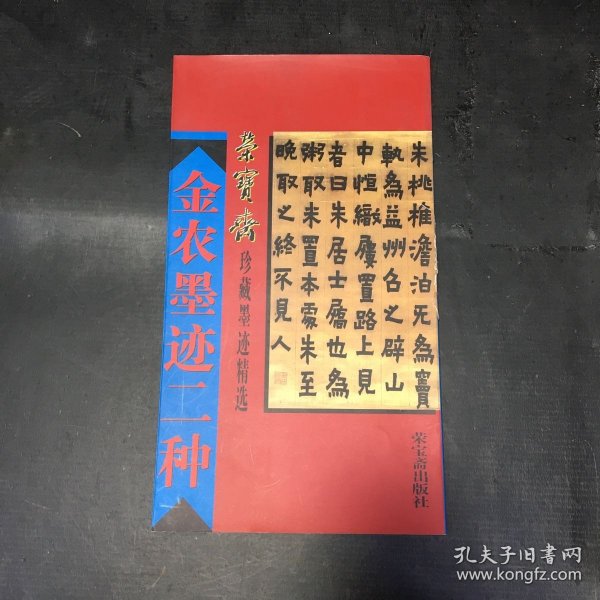 金农墨迹二种
荣寳齋
珍藏墨迹精选
朱桃椎澹泊无為竇
軌為益州召之辟山
中恒織屨置路上見
者曰朱居士屩也為
粥取米置本處朱至
晚取之終不見人
荣宝斋出版社
孔夫子旧书网
www.kongfz.com